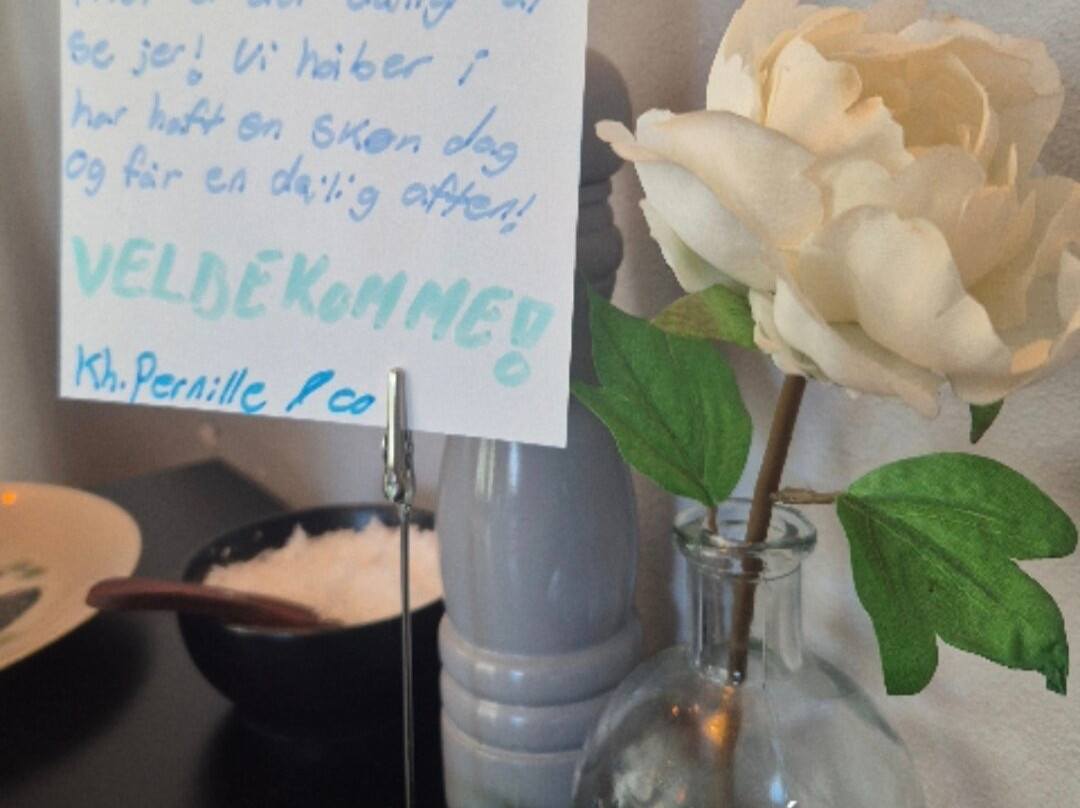 se jer! Vi håber i
har haft en skøn dag
og får en dejlig aften!
VELDEKOMME!
Kh. Pernille & co